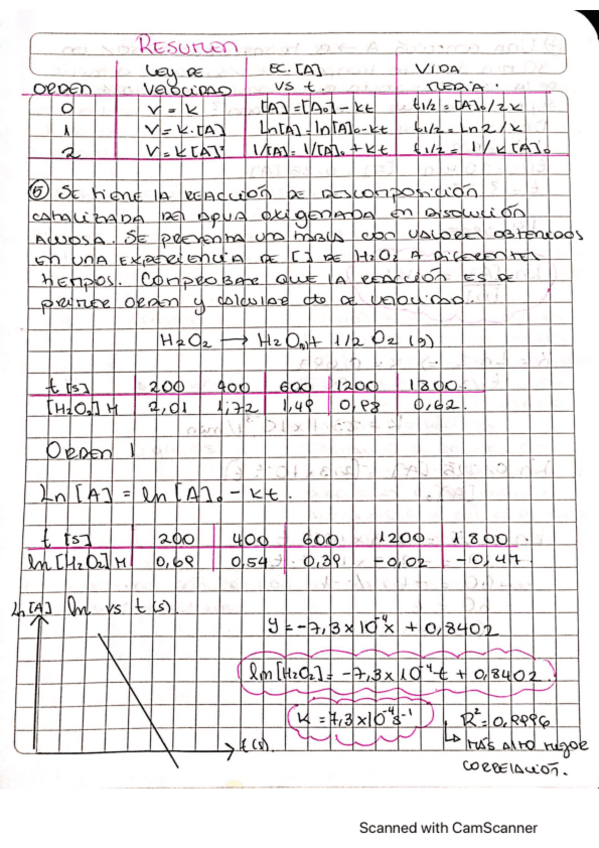 RESUMEN
ORDEN LEY DE VELOCIDAD EC. [A] VS t. VIDA MEDIA.
0 V = K [A] = [A₀] - Kt t₁/₂ = [A]₀/2K
1 V = K·[A] Ln[A] = ln[A]₀ - Kt t₁/₂ = Ln2/K
2 V = K[A]² 1/[A] = 1/[A]₀ + Kt t₁/₂ = 1/K[A]₀
⑤ SE TIENE LA REACCIÓN DE DESCOMPOSICIÓN
CATALIZADA DEL AGUA OXIGENADA EN DISOLUCIÓN
ACUOSA. SE PRESENTA UNA TABLA CON VALORES OBTENIDOS
EN UNA EXPERIENCIA DE [] DE H₂O₂ A DIFERENTES
TIEMPOS. COMPROBAR QUE LA REACCIÓN ES DE
PRIMER ORDEN Y CALCULAR cte DE VELOCIDAD.
H₂O₂ → H₂O(l) + 1/2 O₂ (g)
t [s] 200 400 600 1200 1800
[H₂O₂] M 2,01 1,72 1,49 0,98 0,62
ORDEN 1
Ln [A] = ln [A]₀ - Kt.
t [s] 200 400 600 1200 1800
ln [H₂O₂] M 0,69 0,54 0,39 -0,02 -0,47
Ln [A] ln vs t (s).
y = -7,3 x 10⁻⁴x + 0,8402
ln [H₂O₂] = -7,3 x 10⁻⁴t + 0,8402.
K = 7,3x10⁻⁴s⁻¹ R² = 0,9996
t (s). ↳ MÁS ALTO MEJOR
CORRELACIÓN.
Scanned with CamScanner